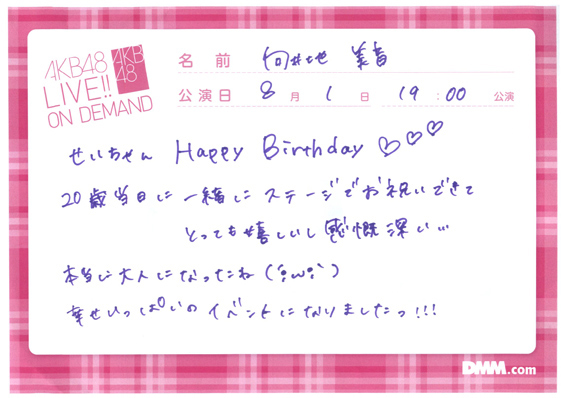 AKB48
LIVE!!
ON DEMAND
AKB
48
名前 向井地 美音
公演日 8 月 1 日 19:00 公演
せいちゃん Happy Birthday ♡♡♡
20歳当日に一緒にステージでお祝いできて
とっても嬉しいし感慨深い…
本当に大人になったね (´;ω;`)
幸せいっぱいのイベントになりましたっ!!!
DMM.com